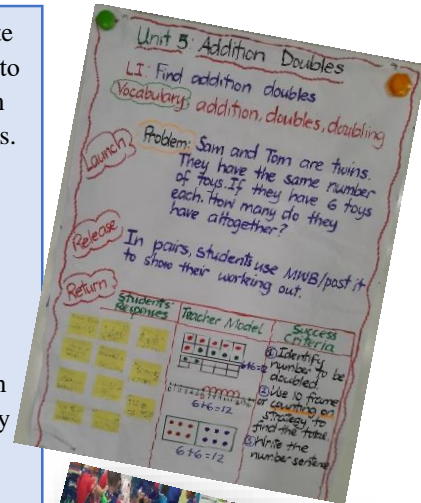 te
to
n
s.
n
y
Unit 5: Addition Doubles
LI: Find addition doubles
Vocabulary: addition, doubles, doubling
Launch
Problem: Sam and Tom are twins.
They have the same number
of toys. If they have 6 toys
each. How many do they
have altogether?
Release
In pairs, students use MWB/post it
to show their working out.
Return
Students' Responses
Teacher Model
6+6=12
6+6=12
6+6=12
Success Criteria
① Identify
number to be
doubled
② Use 10 frame
or counting on
strategy to
find the total.
③ Write the
number sentence